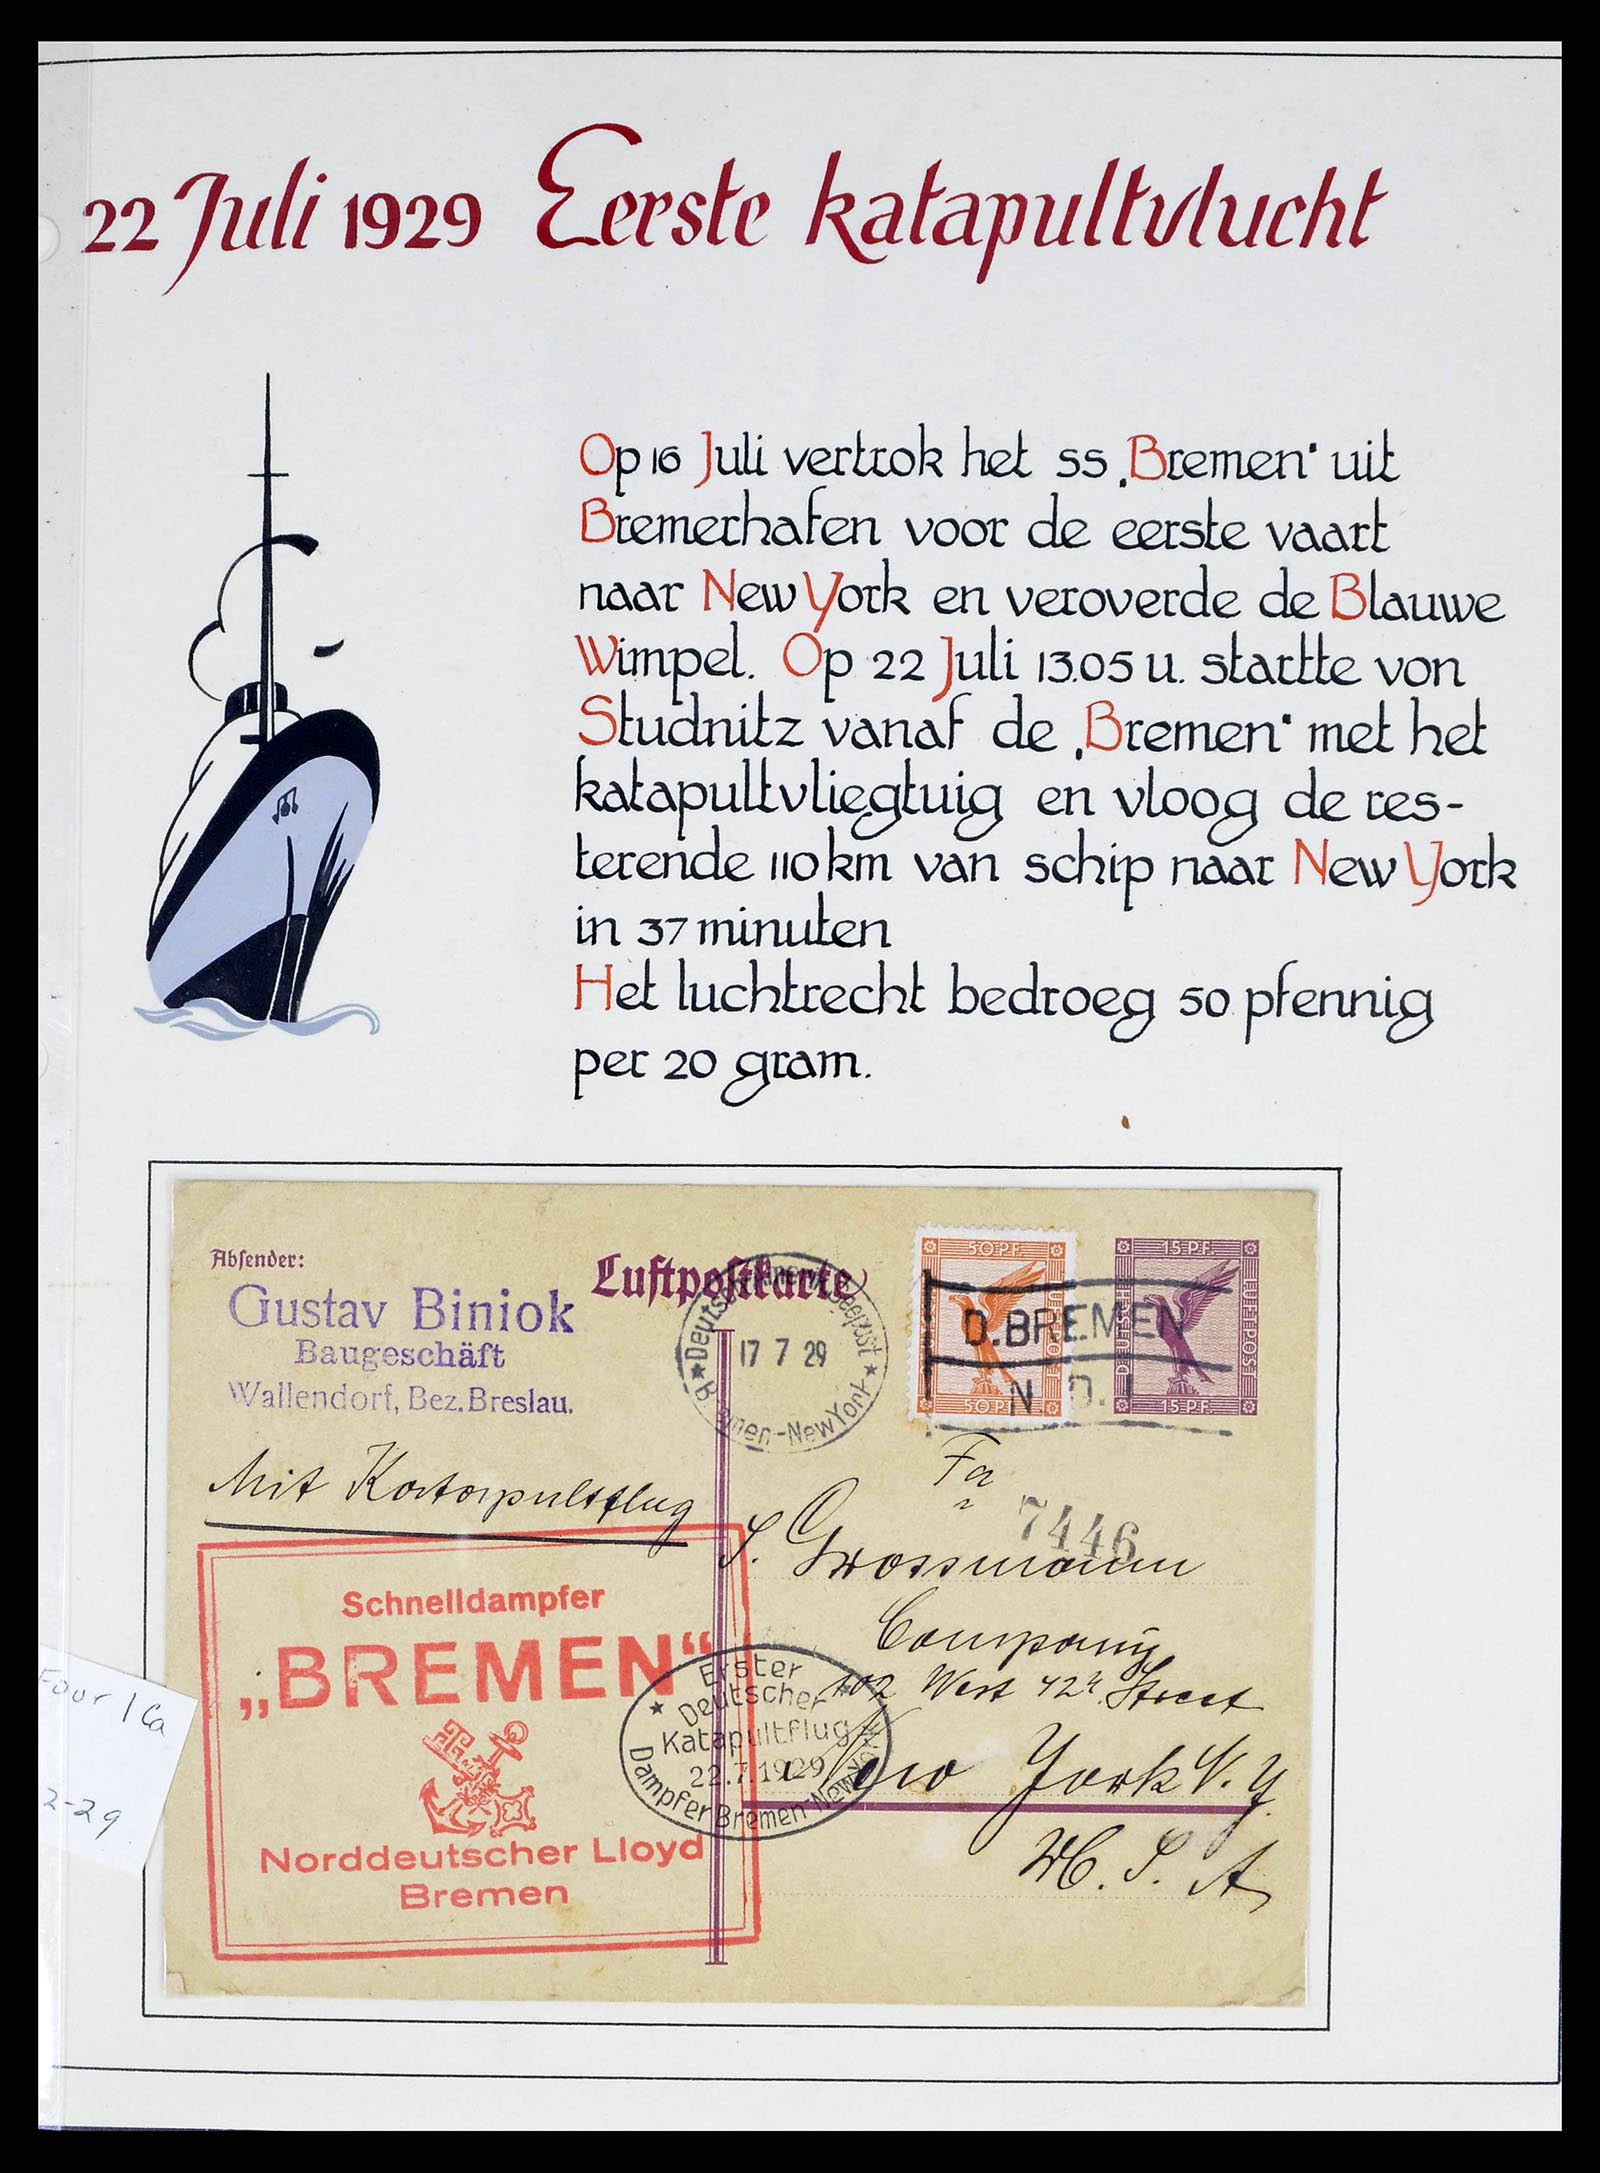 22 Juli 1929 Eerste katapultvlucht
Op 16 Juli vertrok het ss „Bremen“ uit
Bremerhafen voor de eerste vaart
naar New York en veroverde de Blauwe
Wimpel. Op 22 Juli 13.05 u. startte von
Studnitz vanaf de „Bremen“ met het
katapultvliegtuig en vloog de res-
terende 110 km van schip naar New York
in 37 minuten
Het luchtrecht bedroeg 50 pfennig
per 20 gram.
Absender:
Gustav Biniok
Baugeschäft
Wallendorf, Bez. Breslau.
Luftpostkarte
17 7 29
Bremen-New York
50 PF.
50 PF.
15 PF.
DEUTSCHE
LUFTPOST
15 PF.
D. BREMEN
Mit Katapultflug
Fa
7446
S. Grossmann
Company
102 West 42 Street
New York N. Y.
U. S. A
Schnelldampfer
„BREMEN“
Norddeutscher Lloyd
Bremen
Erster
Deutscher
Katapultflug
22.7.1929
Dampfer Bremen-New York
2-29